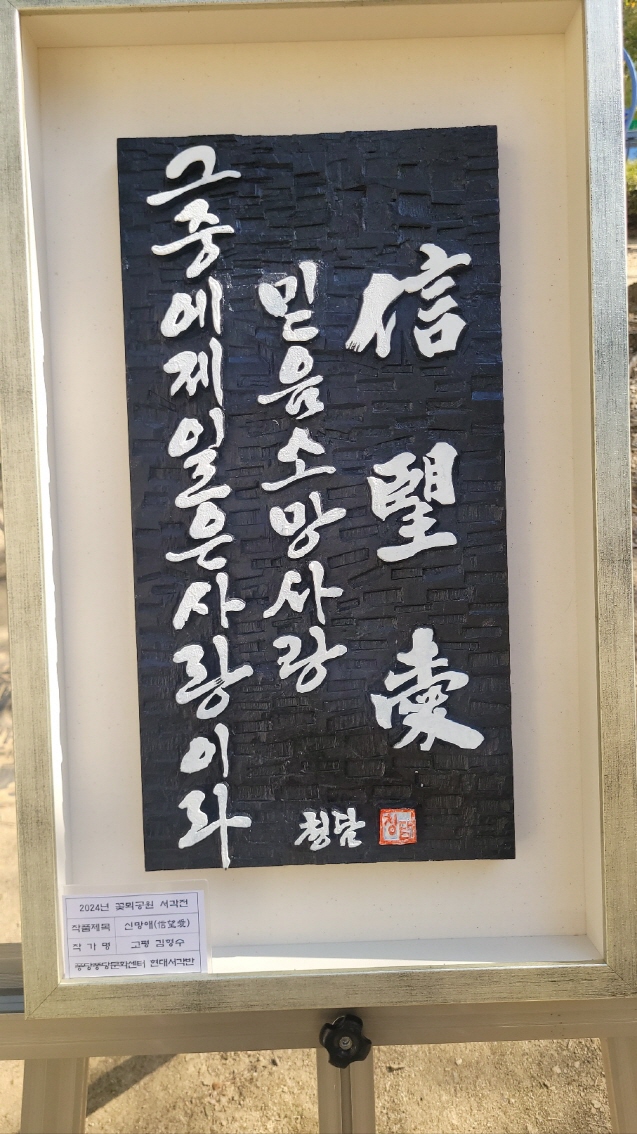 信望愛
믿음소망사랑
그중에제일은사랑이라
청담
청담
2024년 꽃뫼공원 서각전
작품제목 신망애(信望愛)
작가명 고평 김향수
현대서각반